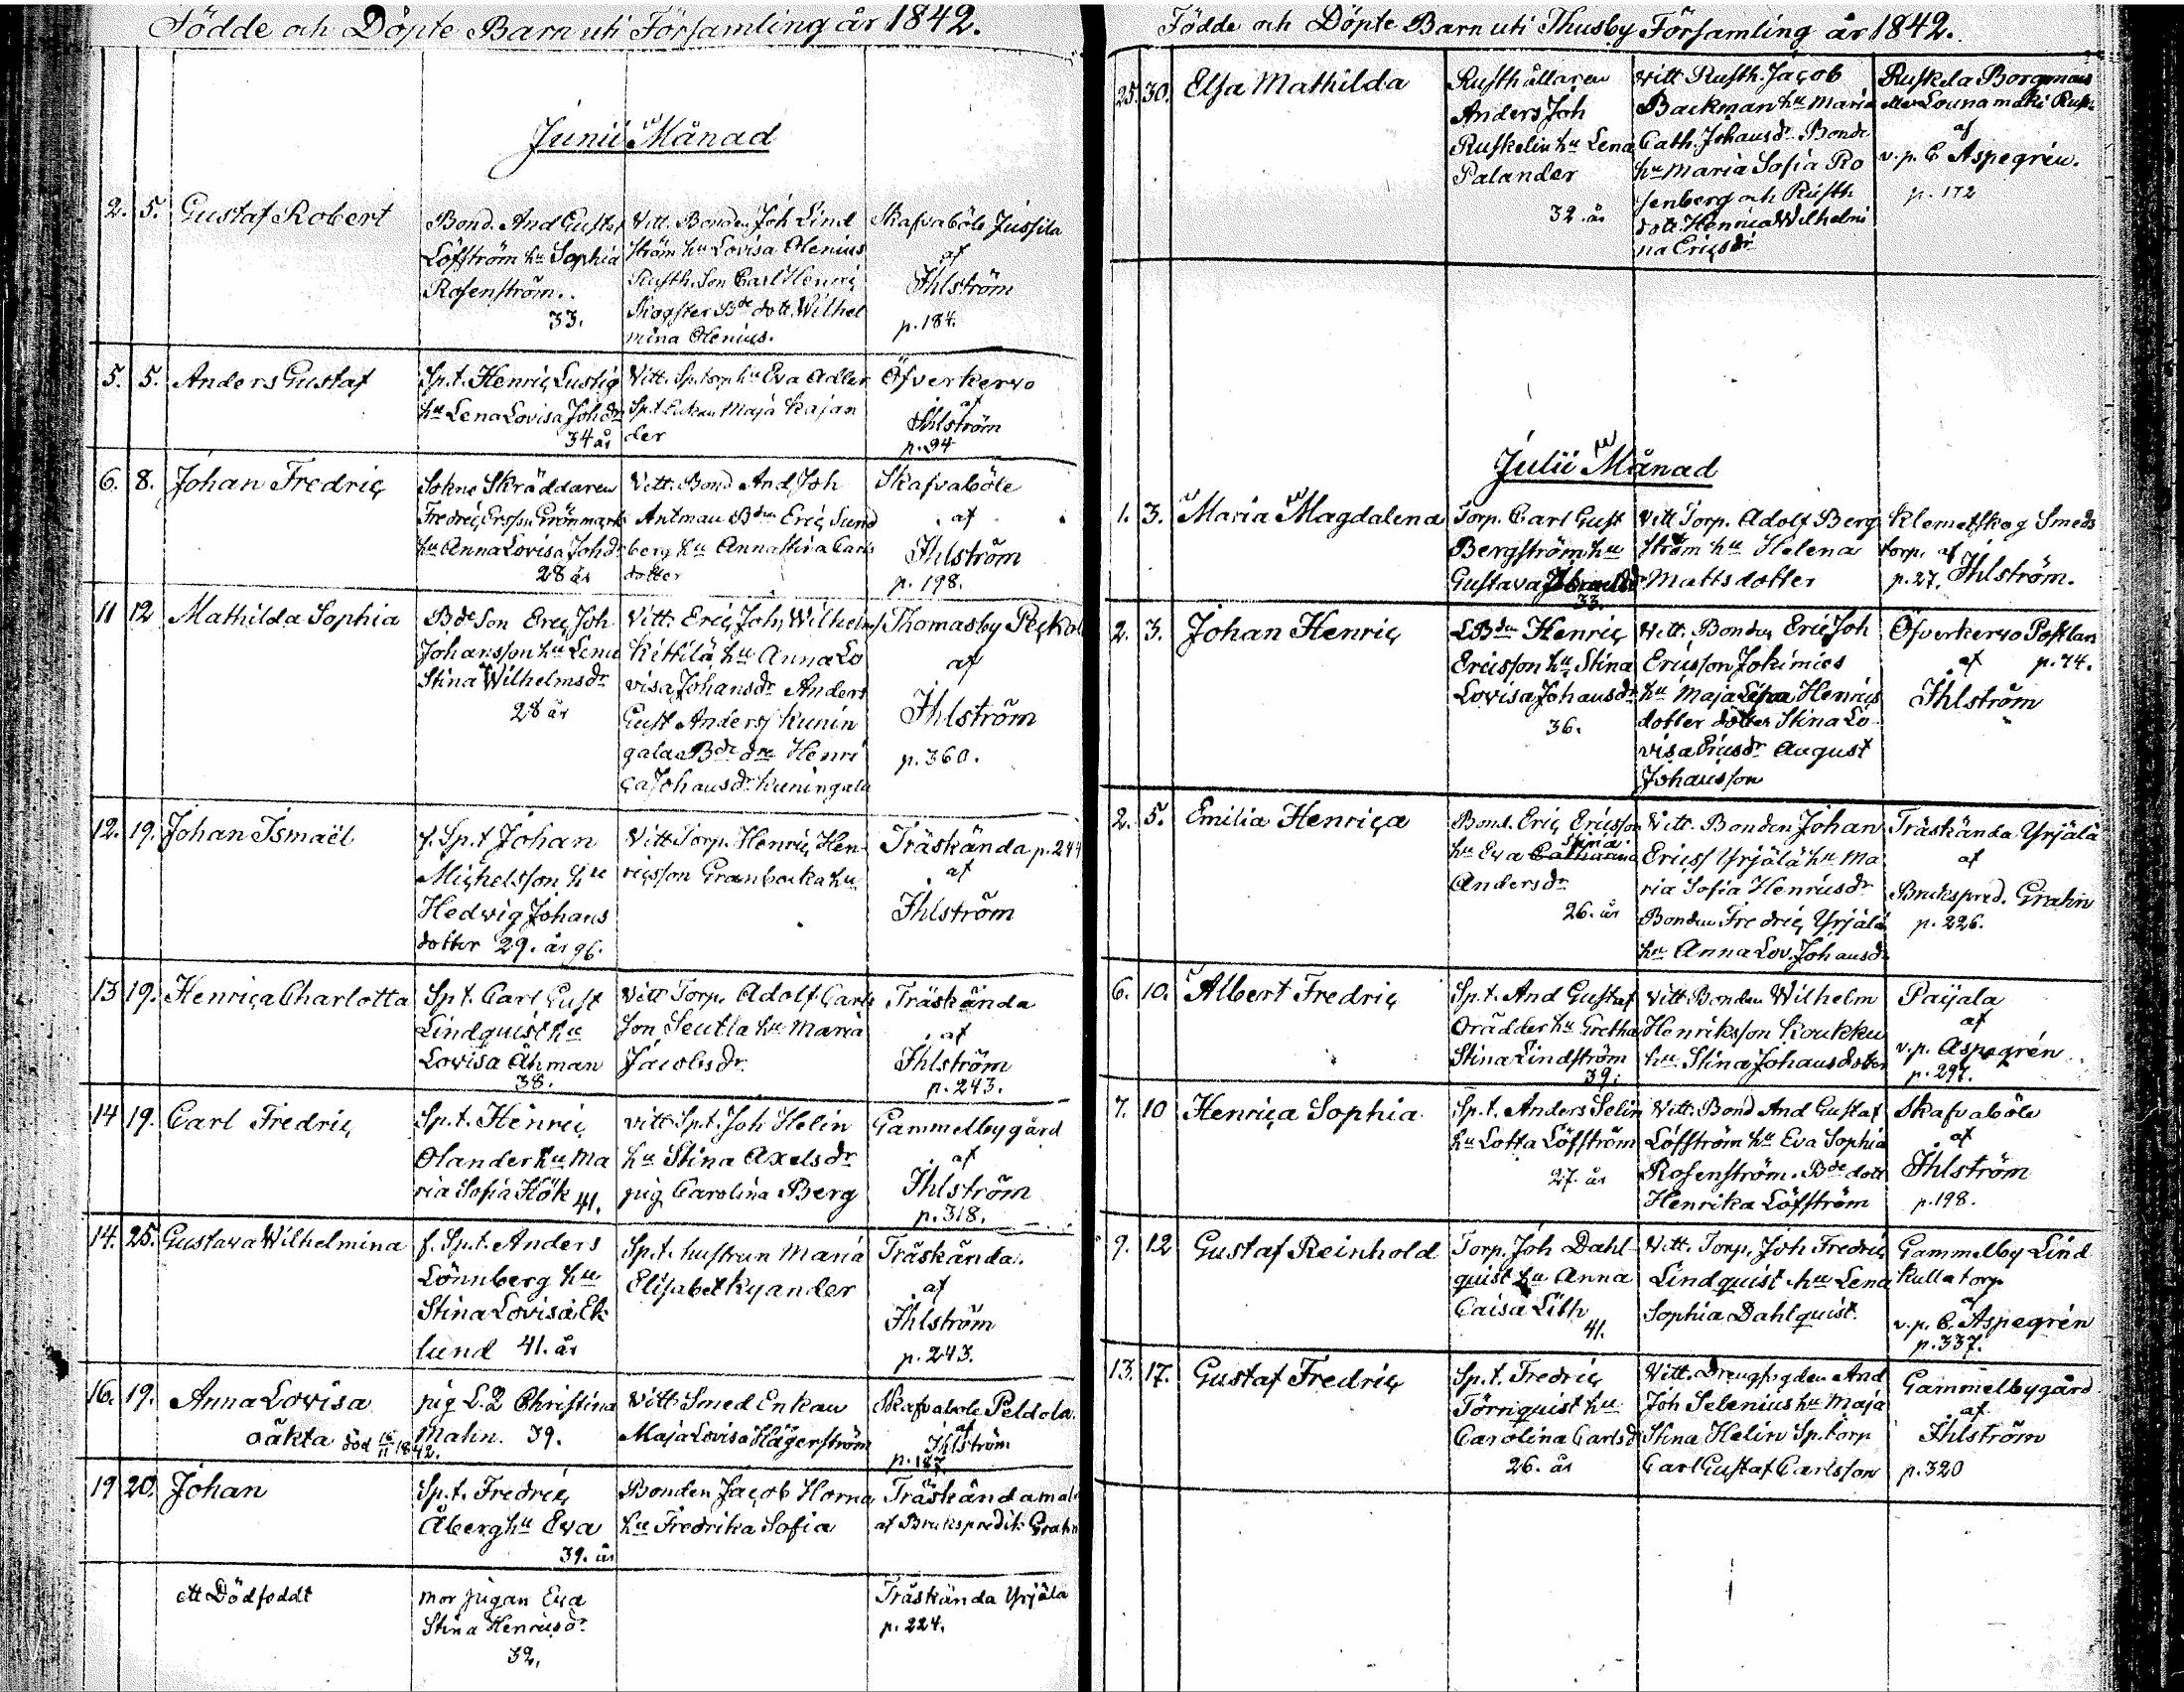 Födde och Döpte Barn uti Församling år 1842.
Junii Månad
2. 5. Gustaf Robert
Bond. And Gustaf
Löfström hu Sophia
Rosenström.
33.
Vitt. Bonden Joh Lind
ström hu Lovisa Olenius
Rusth. Son Carl Henriç
Skogster Bde dott. Wilhel
mina Olenius.
Skafvaböle Jussila
af
Ihlström
p. 184.
5. 5. Anders Gustaf
Sp.t. Henriç Lustig
hu Lena Lovisa Johdr
34 år
Vitt. Sp.torp hu Eva Adler
Sp.t Enkan Maja Kajan
der
Öfverkervo
af
Ihlström
p. 94
6. 8. Johan Fredriç
Sokne Skräddaren
Fredriç Ersson Grönmark
hu Anna Lovisa Johdr
28 år
Vitt. Bond And Joh
Antman Bdn Eriç Sund
berg hu Anna Stina Carls
dotter
Skafvaböle
af
Ihlström
p. 198.
11 12 Mathilda Sophia
Bde Son Eriç Joh
Johansson hu Lena
Stina Wilhelmsdr
28 år
Vitt. Eriç Joh, Wilhelms
Kittilä hu Anna Lo
visa Johansdr Anders
Gust Anderss Kunin
gala Bde dre Henri
ça Johansdr Kuningala
Thomasby
af
Ihlström
p. 360.
12. 19. Johan Ismaël
f. Sp.t Johan
Miçhelsson hu
Hedvig Johans
dotter 29. år
Vitt Torp. Henriç Hen
riçsson Granbacka hu
Träskända p. 244
af
Ihlström
13 19. Henriça Charlotta
Sp.t. Carl Gust
Lindquist hu
Lovisa Åhman
38.
Vitt Torp. Adolf Carls
son Seutla hu Maria
Jacobsdr.
Träskända
af
Ihlström
p. 243.
14 19. Carl Fredriç
Sp.t. Henriç
Olander hu Ma
ria Sofia Hök 41.
vitt Sp.t. Joh Helin
hu Stina Axelsdr
pig Carolina Berg
Gammelby gård
af
Ihlström
p. 318.
14. 25. Gustava Wilhelmina
f. Sp.t. Anders
Lönnberg hu
Stina Lovisa Ek
lund 41. år
Sp.t. hustrun Maria
Elisabet Kyander
Träskända.
af
Ihlström
p. 243.
16. 19. Anna Lovisa
oäkta död 16/11 1842.
pig L.2 Christina
Malin. 39.
Vitt Smed Enkan
Maja Lovisa Hägerström
Skafvabole Peldola.
af
Ihlström
19 20. Johan
Sp.t. Fredriç
Åberg hu Eva
39. år
Bonden Jaçob Horna
hu Fredrika Sofia
Träskända
af Brukspredik Grahn
ett Dödfoddt
mor pigan Eva
Stina Henriçsdr
32.
Träskända Yrjälä
p. 224.
Födde och Döpte Barn uti Thusby Församling år 1842.
25. 30. Elsa Mathilda
Rusthållaren
Anders Joh
Ruskelin hu Lena
Palander
32. år
Vitt Rusth. Jaçob
Backman hu Maria
Cath. Johansdr. Bonde
hu Maria Sofia Ro
senberg och Rusth
dott. Henrica Wilhelmi
na Ericsdr
Ruskela Borgmans
eller Lounamäki
af
v.p. C Aspegrén.
p. 172
Julii Månad
1. 3. Maria Magdalena
Torp. Carl Gust
Bergström hu
Gustava
33.
Vitt Torp. Adolf Berg
ström hu Helena
Mattsdotter
Klemetskog Smeds
torp. af
p. 27. Ihlström.
2. 3. Johan Henriç
LBdn Henriç
Ericsson hu Stina
Lovisa Johansdr
36.
Vitt. Bonden Eric Joh
Ericsson Jokimies
hu Maja Lena Henriçs
dotter dotter Stina Lo
visa Ericsdr August
Johansson
Öfverkervo
af p. 74.
Ihlström
2. 5. Emilia Henriça
Bond. Eriç Ericsson
Stina
hu Eva Catharina
Andersdr
26. år
Vitt. Bonden Johan
Ericss Yrjälä hu Ma
ria Sofia Henricsdr
Bonden Fredriç Yrjälä
hu Anna Lov. Johansdr
Träskända Yrjälä
af
Brukspred. Grahn
p. 226.
6. 10. Albert Fredriç
Sp.t. And Gustaf
Orädder hu Gretha
Stina Lindström
39.
Vitt. Bonden Wilhelm
Henriksson Koukku
hu Stina Johansdotter
Paijala
af
v.p. Aspegrén
p. 297.
7. 10 Henriça Sophia
Sp.t. Anders Selin
hu Lotta Löfström
27. år
Vitt. Bond And Gustaf
Löfström hu Eva Sophia
Rosenström. Bde dott
Henrika Löfström
Skafvaböle
af
Ihlström
p. 198.
9. 12 Gustaf Reinhold
Torp. Joh Dahl
quist hu Anna
Caisa Lith
41.
Vitt. Torp. Joh Fredriç
Lindquist hu Lena
Sophia Dahlquist.
Gammelby Lind
kulla torp
af
v.p. C. Aspegrén
p. 337.
13. 17. Gustaf Fredriç
Sp.t. Fredriç
Törnquist hu
Carolina Carlsd
26. år
Vitt. Drengfogden And
Joh Selenius hu Maja
Stina Helin Sp.torp
Carl Gustaf Carlsson
Gammelbygård
af
Ihlström
p. 320